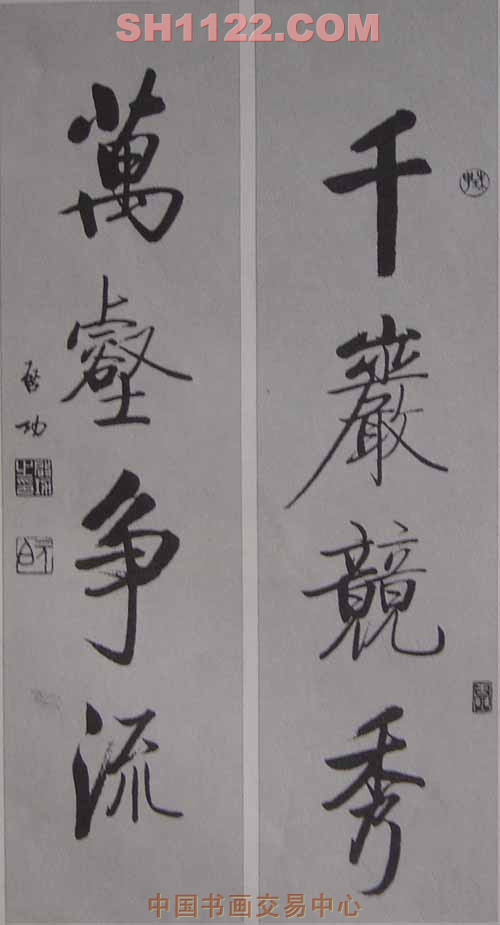 SH1122.COM
千巖競秀
萬壑争流
啓功
中国书画交易中心